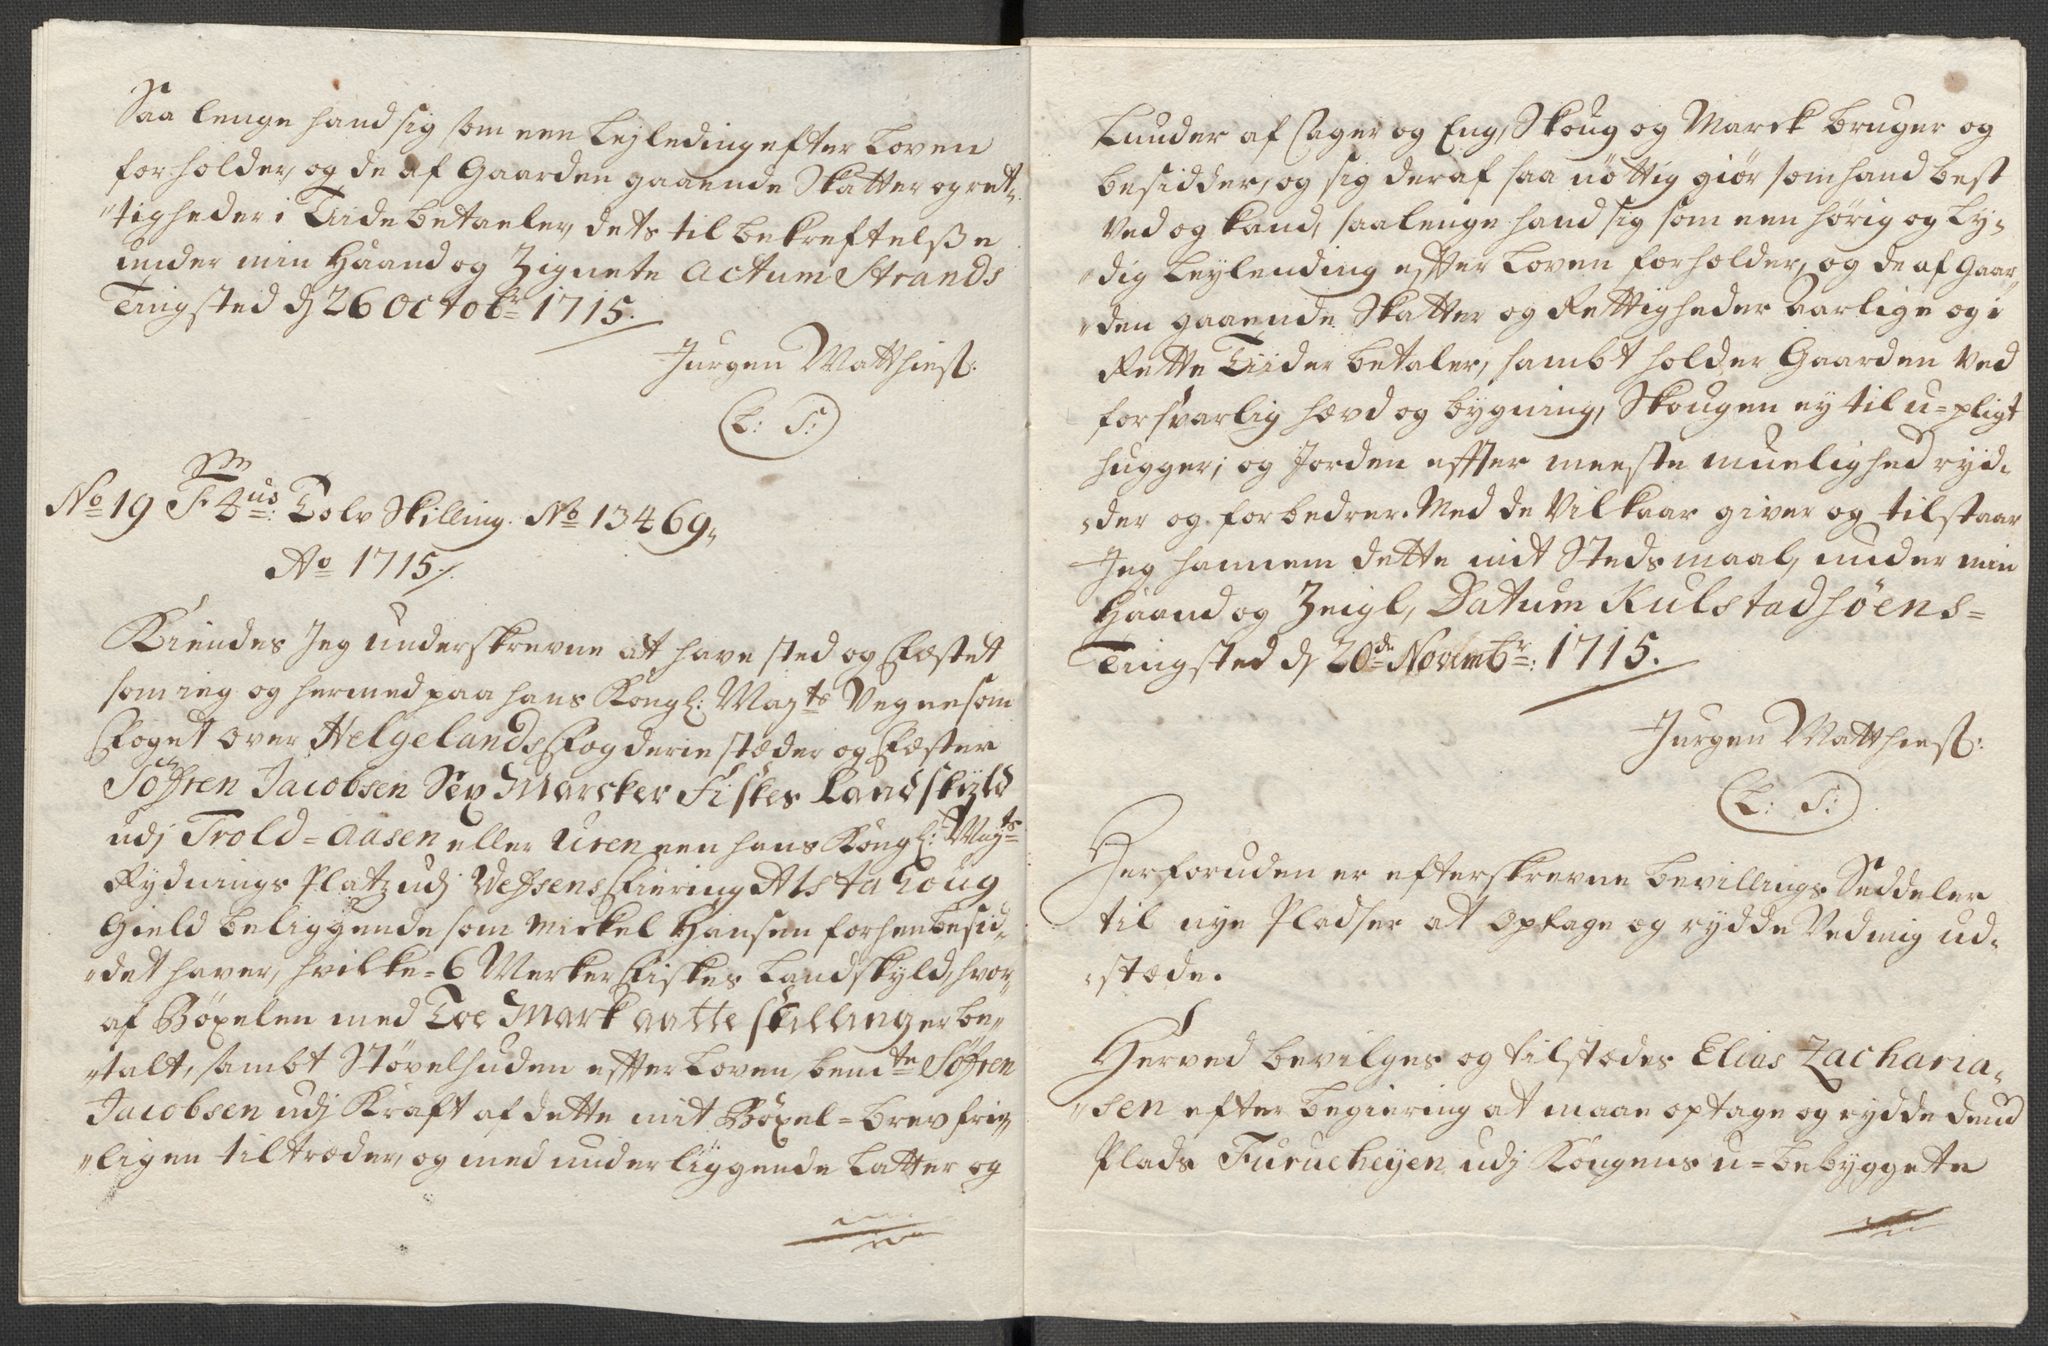 Saa lenge hand sig som een Lejleding efter Loven
forholder, og de af Gaarden gaaende Skatter og ret-
tigheder i Tiide betaeler, dets til bekreftelße
under min Haand og Zignete Actum Strands
Tingsted d 26 Octobr 1715.
Jurgen Matthiesß:
(L: S:)
No 19 F 4us: Tolv Skilling. No 13469,
Ao 1715/.
Kiendes Jeg underskrevne at have sted og Fæstet
som ieg og hermed paa hans Kongl: Mayts Vegne som
Foget over Helgelands Fogderie stæder og Fæster
Söfren Jacobsen Sex Marcker Fiskes Landskyld
udj Trold-Aasen eller Uren een hans Kongl: Mayts
Rydnings Platz udj Wefsens Fiering Alstahoug
Gield beliggende som Mickel Hansen forhen besid-
det haver, hvilke 6 Merker Fiskes Landskyld, hvor-
af Böxelen med Toe Mark aatte skilling er be-
talt, sambt Støvelhuden effter Loven, bemte Söfren
Jacobsen udj Kraft af dette mit Böxel-brev frie-
ligen tiltræder, og med underliggende Latter og
Lunder af Ager og Eng, Skoug og Marck bruger og
besidder, og sig deraf saa nöttig giør som hand best
Ved og kand, saalenge hand sig som een hörig og Ly-
dig Leylending effter Loven forholder, og de af Gaar-
den gaaende Skatter og Rettigheder aarlige og i
Rette Tiider betaler, sambt holder Gaarden Ved
forsvarlig hævd og bygning, Skougen ey til u-pligt
hugger, og Jorden effter meeste muelighed ryd-
der og forbedrer. Med de Vilkaar giver og tilstaar
Jeg hannem dette mit Stedsmaal, under min
Haand og Zeigl, Datum Kulstadsöens-
Tingsted d 20de Novembr: 1715.
Jurgen Matthiesß:
(L: S:)
Herforuden er efterskrevne bevillings Seddeler
til nye Pladser at optage og rydde Ved mig ud-
stæde.
Herved bevilges og tilstædes Elias Zacharia-
sen efter begiering at maae optage og rydde dend
Plads Furueheyen udj Kongens u-bebyggete